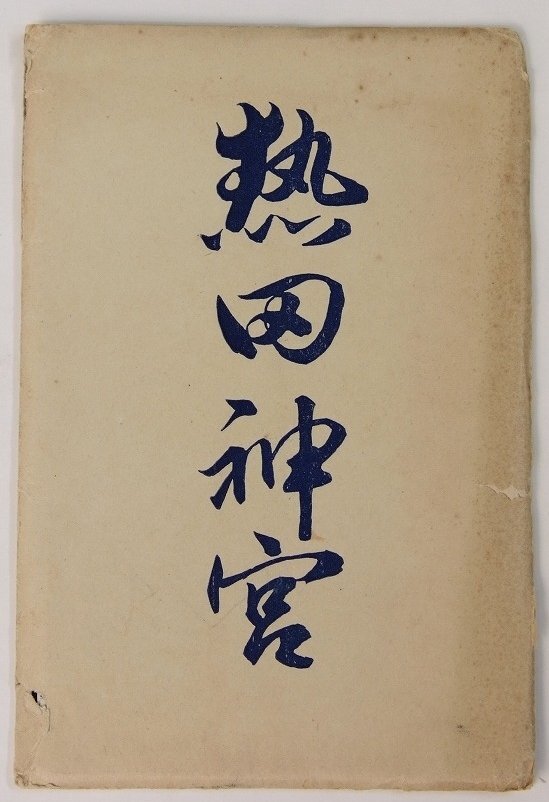 熱田神宮